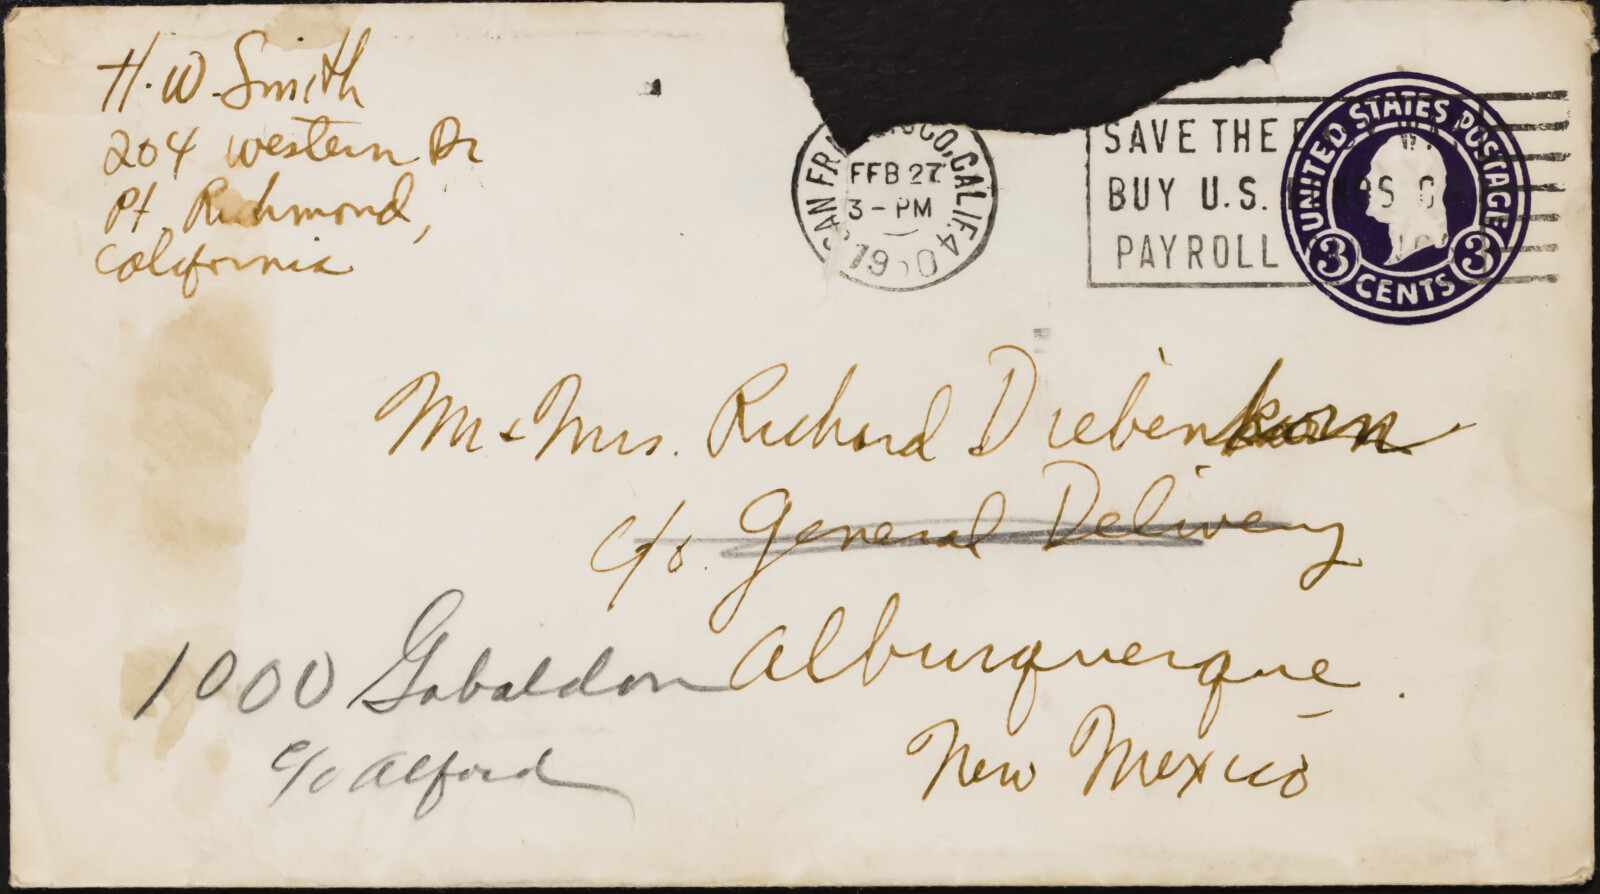 H. W. Smith
204 Western Dr
Pt. Richmond,
California
SAN FR CO, CALIF. 4
FEB 27
3 - PM
1950
SAVE THE
BUY U.S.
PAYROLL
UNITED STATES POSTAGE
3 CENTS 3
Mr & Mrs. Richard Diebenkorn
c/o. General Delivery
Alburquerque.
New Mexico
1000 Gabaldon
c/o Alford